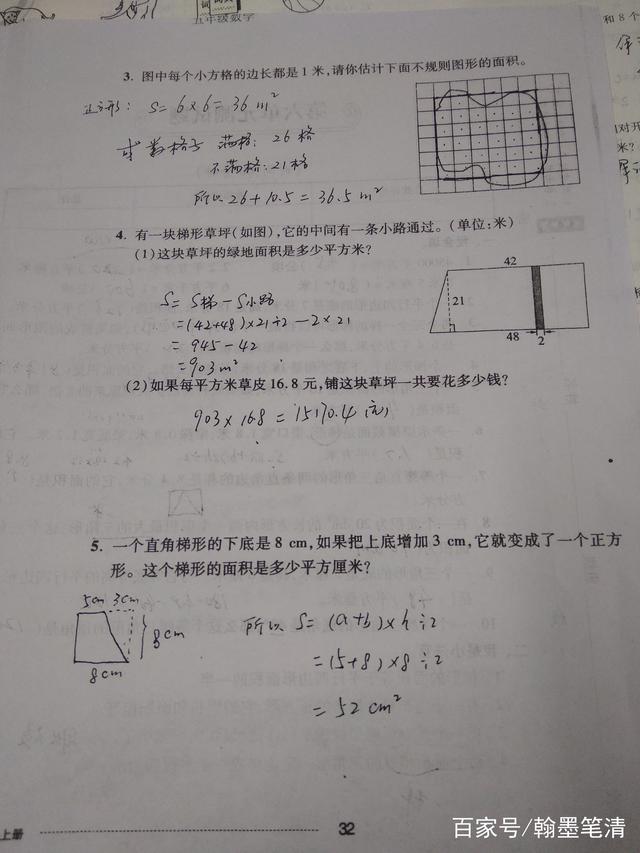 五年级数学
和8个
3. 图中每个小方格的边长都是1米,请你估计下面不规则图形的面积。
正方形: S=6×6=36m²
或数格子 满格: 26格
不满格: 21格
所以26+10.5=36.5m²
4. 有一块梯形草坪(如图),它的中间有一条小路通过。(单位:米)
(1)这块草坪的绿地面积是多少平方米?
42
21
48
2
S=S梯-S小路
=(42+48)×21÷2-2×21
=945-42
=903m²
(2)如果每平方米草皮16.8元,铺这块草坪一共要花多少钱?
903×16.8=15170.4(元)
5. 一个直角梯形的下底是8cm,如果把上底增加3cm,它就变成了一个正方
形。这个梯形的面积是多少平方厘米?
5cm 3cm
8cm
8cm
所以 S=(a+b)×h÷2
=(5+8)×8÷2
=52cm²
上册
32
百家号/翰墨笔清